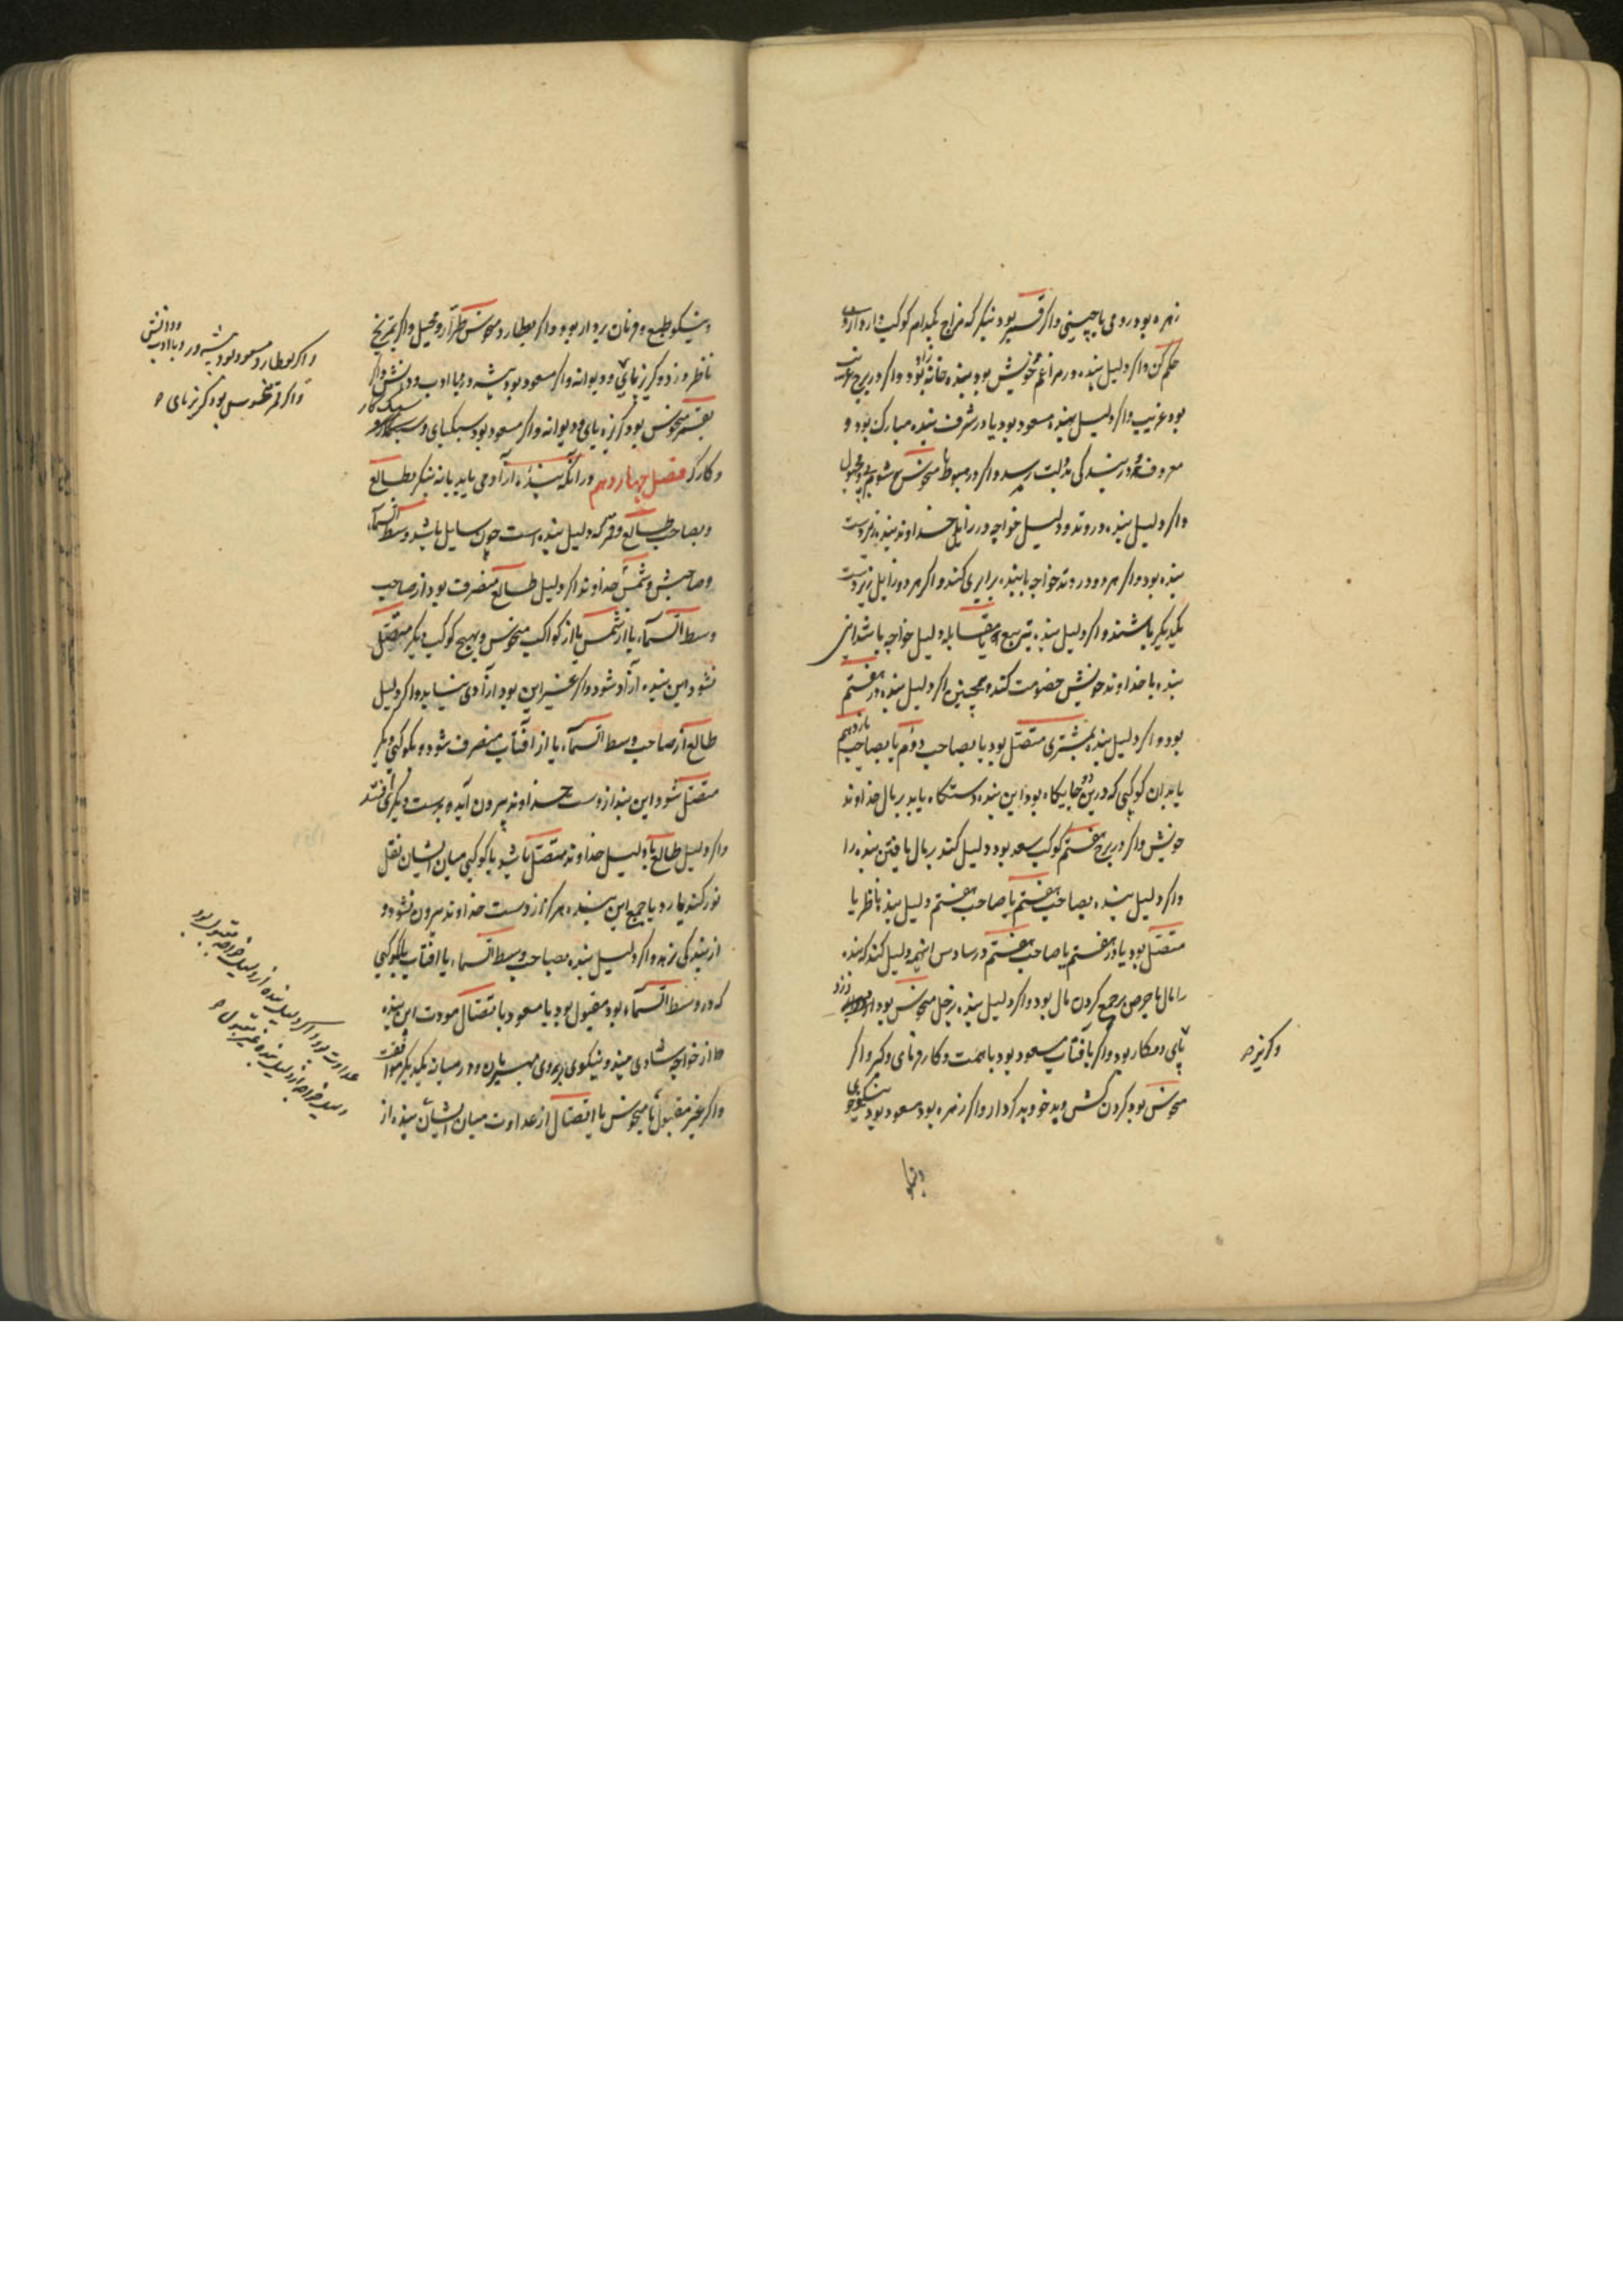 زهره بود رومی یا چینی واکر قمر بود بنکر که مزاج کدام کوکب دارد از وی
حکم کن واکر دلیل بنده در مراغم خویش بود بنده خانه زاد بود واکر در برج غریب
بود غریب واکر دلیل بنده مسعود بود یا در شرف بنده مبارک بود و
معروف و در بندکی بدولت رسد واکر در هبوط یا منحوس شوم بود و مجهول
واکر دلیل بنده در وتد و دلیل خواجه در زایل خداوند بنده زیردست
بنده بود واکر هر دو در وتد خواجه با بنده برابری کند واکر هر دو زایل زیردست
یکدیکر باشند واکر دلیل بنده بتربیع یا مقابله دلیل خواجه باشد این
بنده با خداوند خویش خصومت کند و همچنین اکر دلیل بنده در هفتم
بود واکر دلیل بنده بمشتری متصل بود یا بصاحب دوم یا بصاحب یازدهم
یا بدان کوکبی که درین دو جایکاه بود این بنده دستکاه یابد بر مال خداوند
خویش واکر در برج هفتم کوکب سعد بود دلیل کند بر مال یافتن بنده را
واکر دلیل بنده بصاحب هفتم یا صاحب هفتم دلیل بنده ناظر یا
متصل بود یا در هفتم یا صاحب هفتم در سادس این همه دلیل کند که بنده
را مال با حرص بر جمع کردن مال بود واکر دلیل بنده بزحل منحوس بود دزد
پای و مکار بود واکر بآفتاب مسعود بود با همت و کارفرمای و کبر واکر
منحوس بود کردن کش و بدخو و بدکردار واکر زهره بود مسعود بود نیکوخوی
و کریز ص
و نیکو
و نیکو طبع و فرمان بردار بود واکر بعطارد منحوس طرار و محیل واکر بمریخ
ناظر دزد و کریزپای و دیوانه واکر مسعود بود پیشه‌ور و با ادب و دانش واکر
بقمر منحوس بود کریزپای و دیوانه واکر مسعود بود سبکپای و سبک کار
و کارکر فصل چهاردهم در آنکه بنده آزادی یابد یا نه بنکر بطالع
و بصاحب طالع و قمر که دلیل بنده است چون سایل باشد و وسط السماء
و صاحبش و شمس خداوند اکر دلیل طالع منصرف بود از صاحب
وسط السماء یا از شمس یا از کواکب منحوس و بهیچ کوکب دیکر متصل
نشود این بنده آزاد شود واکر غیر این بود آزادی نیابد واکر دلیل
طالع از صاحب وسط السماء یا از آفتاب منصرف شود و بکوکبی دیکر
متصل شود این بنده از دست خداوند بیرون آید و بدست دیکری افتد
واکر دلیل طالع با دلیل خداوند متصل باشد یا کوکبی میان ایشان نقل
نور کند یا رد یا جمع این بنده هرکز از دست خداوند بیرون نشود و
از بندکی نرهد واکر دلیل بنده بصاحب وسط السماء یا آفتاب یا کوکبی
که در وسط السماء بود مقبول بود یا مسعود با تصال مودت این بنده
از خواجه شادی بیند و نیکوی بر روی مهتران و در میانه یکدیکر موافقت
واکر غیر مقبول یا منحوس یا اتصال از عداوت میان ایشان بنده از
واکر بعطارد مسعود بود پیشه ور و با ادب و دانش
واکر قمر منحوس بود کریزپای ص
عداوت بود واکر دلیل بنده از دلیل خواجه مقبول بود
دلیل خواجه از دلیل بنده غیر مقبول ص